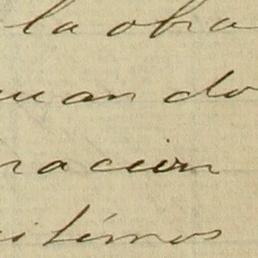 la obra
uando
racion
itimos